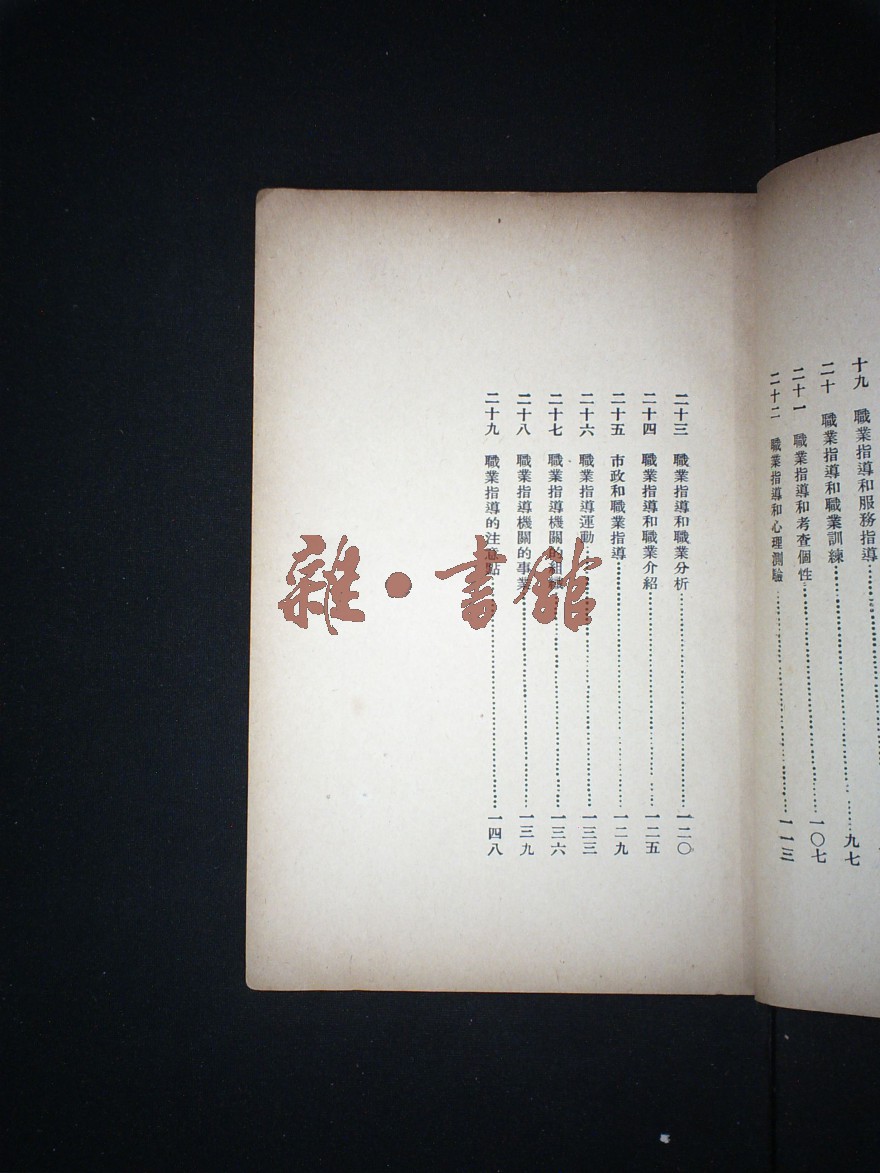 十九　職業指導和服務指導
二十　職業指導和職業訓練……九七
二十一　職業指導和考查個性……一〇七
二十二　職業指導和心理測驗……一一三
二十三　職業指導和職業分析……一二〇
二十四　職業指導和職業介紹……一二五
二十五　市政和職業指導……一二九
二十六　職業指導運動……一三三
二十七　職業指導機關的組織……一三六
二十八　職業指導機關的事業……一三九
二十九　職業指導的注意點……一四八
雜·書館